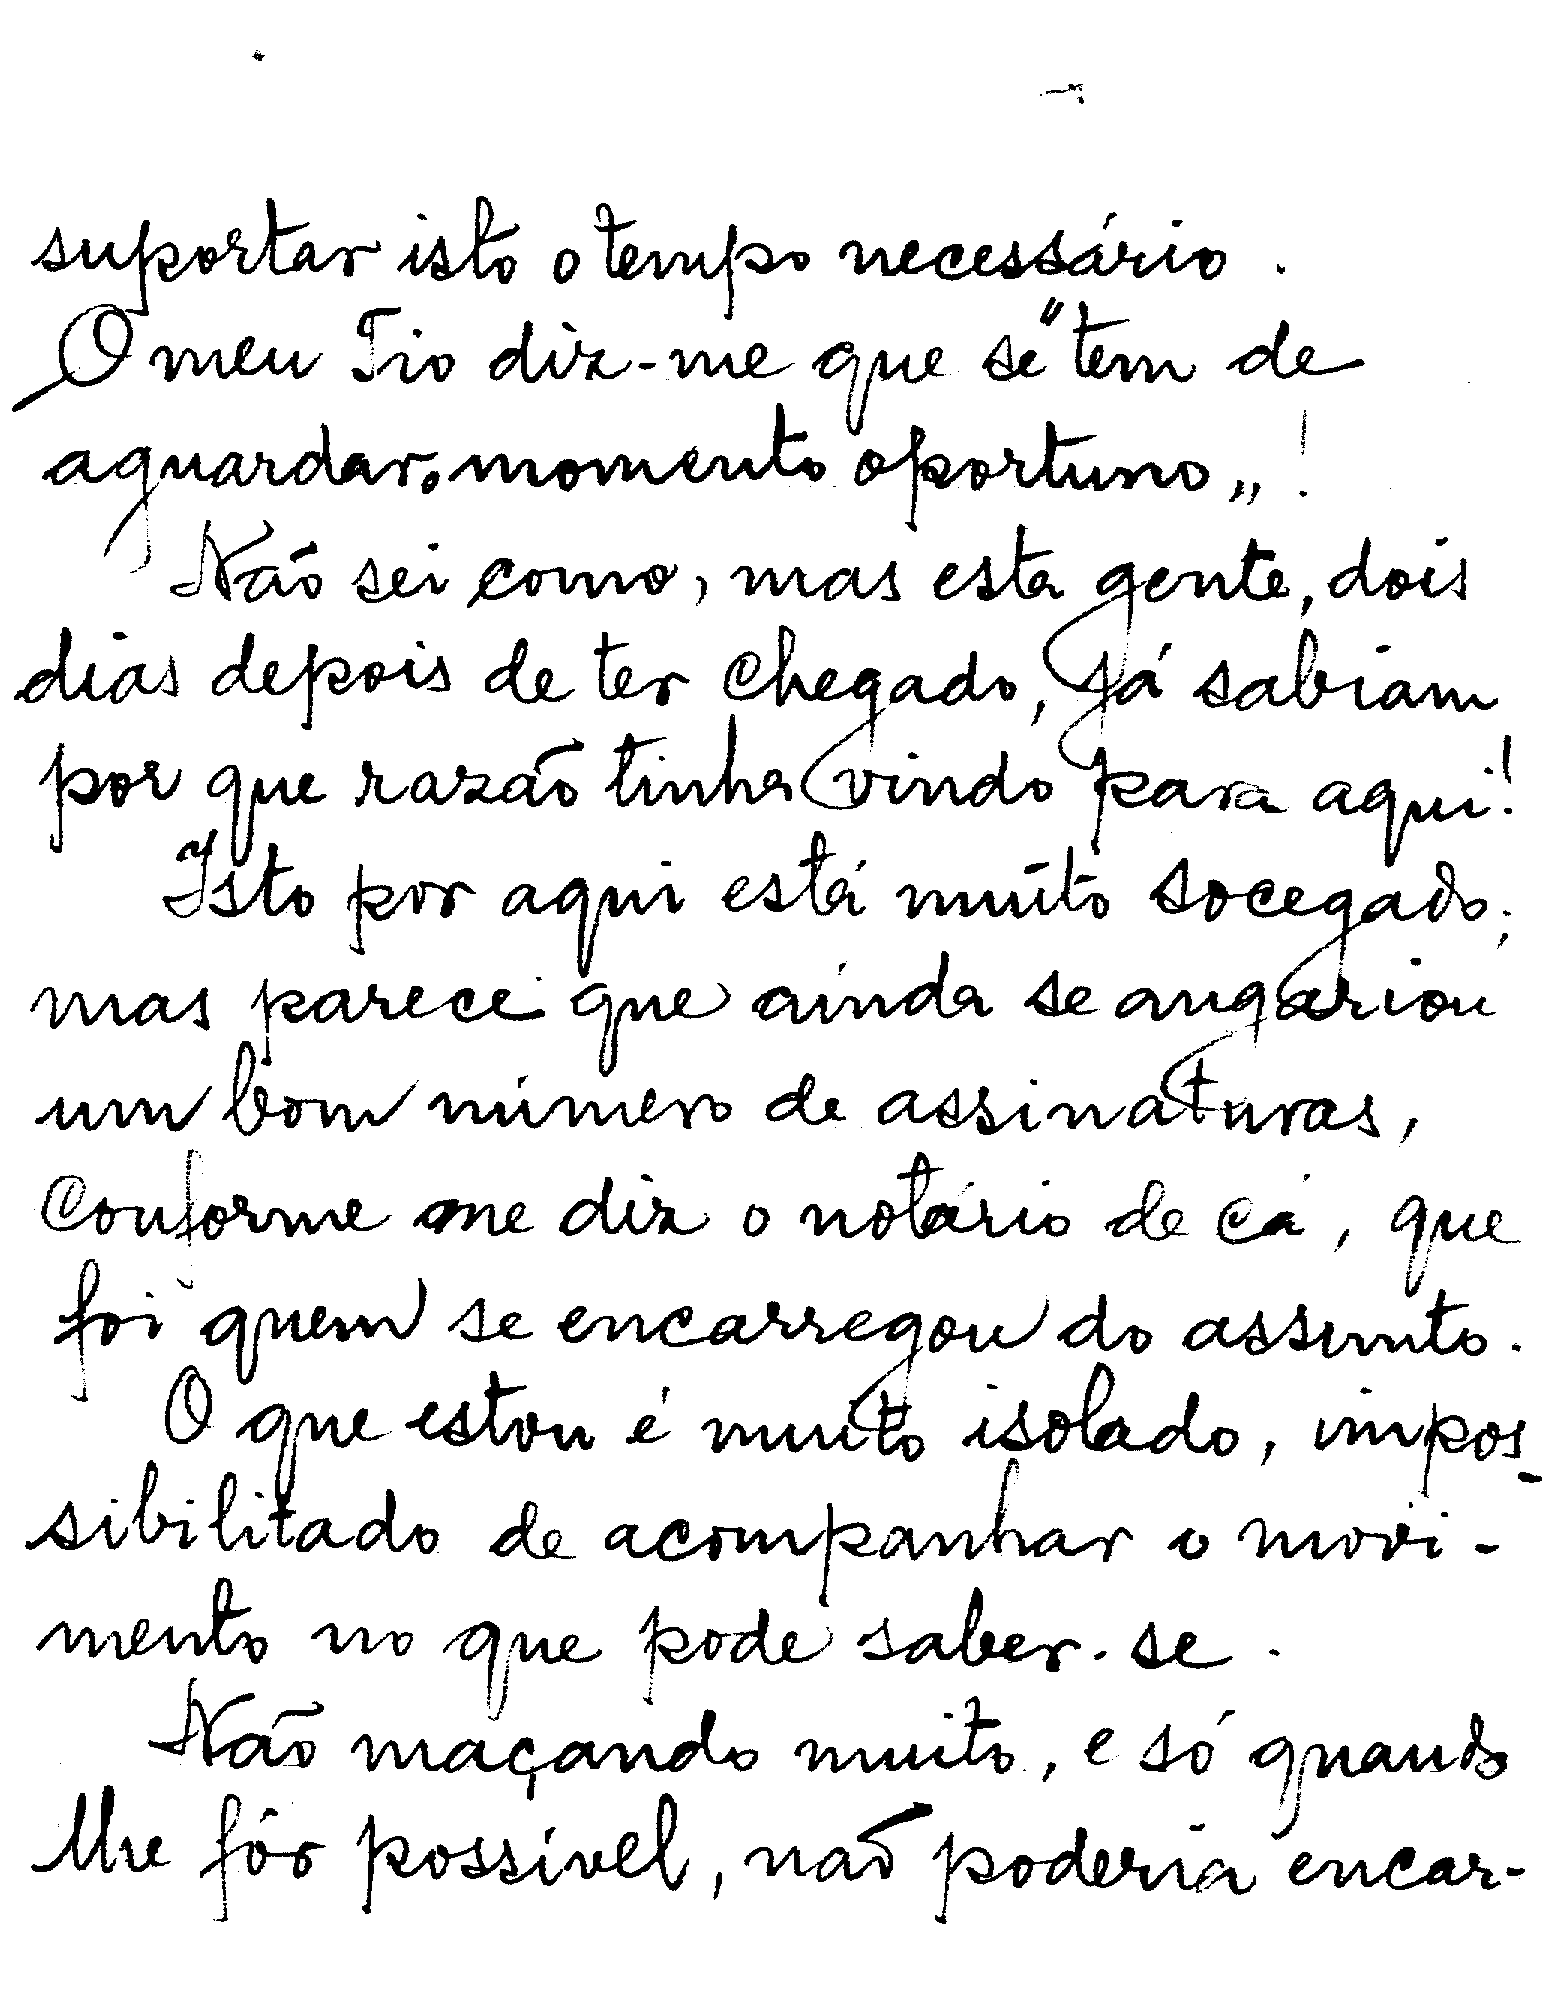 suportar isto o tempo necessário.
O meu Tio diz-me que se "tem de
aguardar o momento oportuno„!
Não sei como, mas esta gente, dois
dias depois de ter chegado, já sabiam
por que razão tinha vindo para aqui!
Isto por aqui está muito socegado;
mas parece que ainda se angariou
um bom número de assinaturas,
conforme me diz o notário de cá, que
foi quem se encarregou do assunto.
O que estou é muito isolado, impos-
sibilitado de acompanhar o movi-
mento no que pode saber-se.
Não maçando muito, e só quando
lhe fôr possível, não poderia encar-